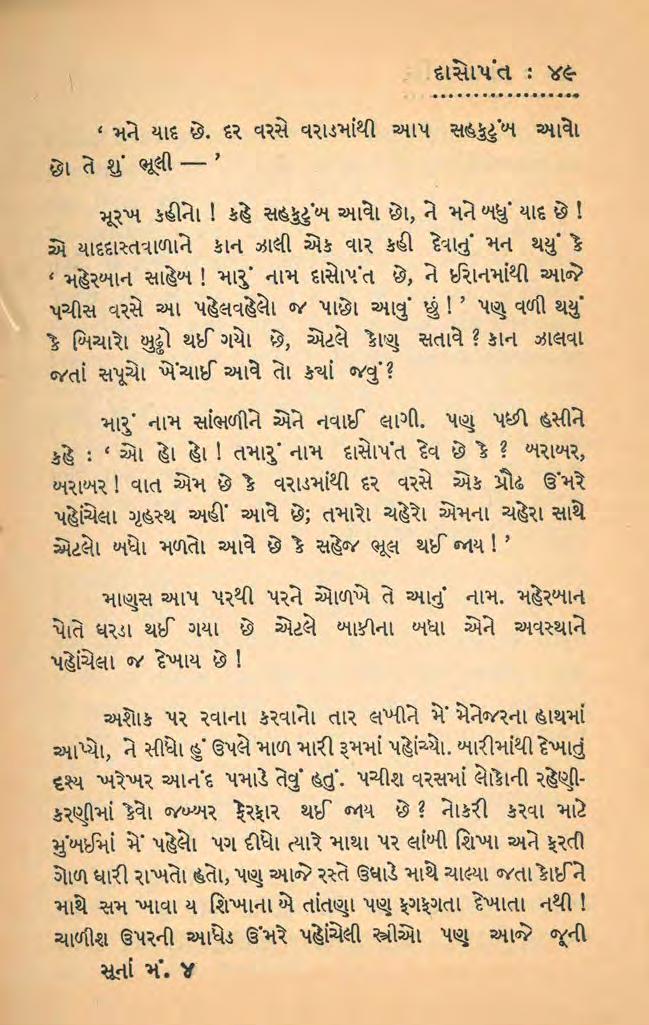 દાસોપંત : ૪૯
‘ મને યાદ છે. દર વરસે વરાડમાંથી આપ સહકુટુંબ આવો
છો તે શું ભૂલી — ’
મૂરખ કહીનો ! કહે સહકુટુંબ આવો છો, ને મને બધું યાદ છે !
એ યાદદાસ્તવાળાને કાન ઝાલી એક વાર કહી દેવાનું મન થયું કે
‘ મહેરબાન સાહેબ ! મારું નામ દાસોપંત છે, ને ઈરાનમાંથી આજે
પચીસ વરસે આ પહેલવહેલો જ પાછો આવું છું ! ’ પણ વળી થયું
કે બિચારો બુઢ્ઢો થઈ ગયો છે, એટલે કોણ સતાવે ? કાન ઝાલવા
જતાં સપૂચો ખેંચાઈ આવે તો ક્યાં જવું ?
મારું નામ સાંભળીને એને નવાઈ લાગી. પણ પછી હસીને
કહે : ‘ ઓ હો હો ! તમારું નામ દાસોપંત દેવ છે કે ? બરાબર,
બરાબર ! વાત એમ છે કે વરાડમાંથી દર વરસે એક પ્રૌઢ ઉંમરે
પહોંચેલા ગૃહસ્થ અહીં આવે છે; તમારો ચહેરો એમના ચહેરા સાથે
એટલો બધો મળતો આવે છે કે સહેજ ભૂલ થઈ જાય ! ’
માણુસ આપ પરથી પરને ઓળખે તે આનું નામ. મહેરબાન
પોતે ઘરડા થઈ ગયા છે એટલે બાકીના બધા એને અવસ્થાને
પહોંચેલા જ દેખાય છે !
અશોક પર રવાના કરવાનો તાર લખીને મેં મેનેજરના હાથમાં
આપ્યો, ને સીધો હું ઉપલે માળ મારી રૂમમાં પહોંચ્યો. બારીમાંથી દેખાતું
દૃશ્ય ખરેખર આનંદ પમાડે તેવું હતું. પચીશ વરસમાં લોકોની રહેણી-
કરણીમાં કેવો જબ્બર ફેરફાર થઈ જાય છે ? નોકરી કરવા માટે
મુંબઈમાં મેં પહેલો પગ દીધો ત્યારે માથા પર લાંબી શિખા અને ફરતી
ગોળ ઘારી રાખતો હતો, પણ આજે રસ્તે ઉઘાડે માથે ચાલ્યા જતા કોઈને
માથે સમ ખાવા ય શિખાના બે તાંતણા પણ ફગફગતા દેખાતા નથી !
ચાળીશ ઉપરની આધેડ ઉંમરે પહોંચેલી સ્ત્રીઓ પણ આજે જૂની
સૂતાં મં. ૪